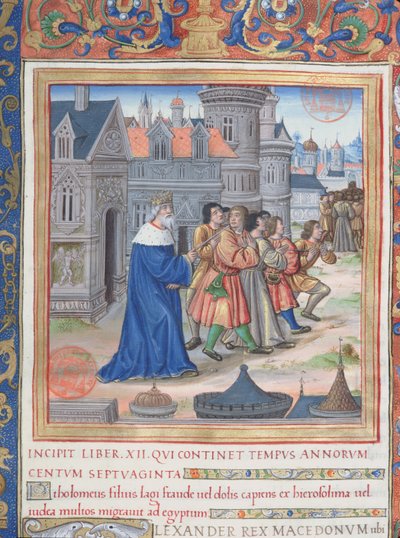 INCIPIT LIBER.XII.QVI CONTINET TEMPVS ANNORVM
CENTVM SEPTVAGINTA
Ptholomeus filius lagi fraude uel dolis capiens ex hierosolima uel
iudea multos migrauit ad egyptum
ALEXANDER REX MACEDONVM ubi